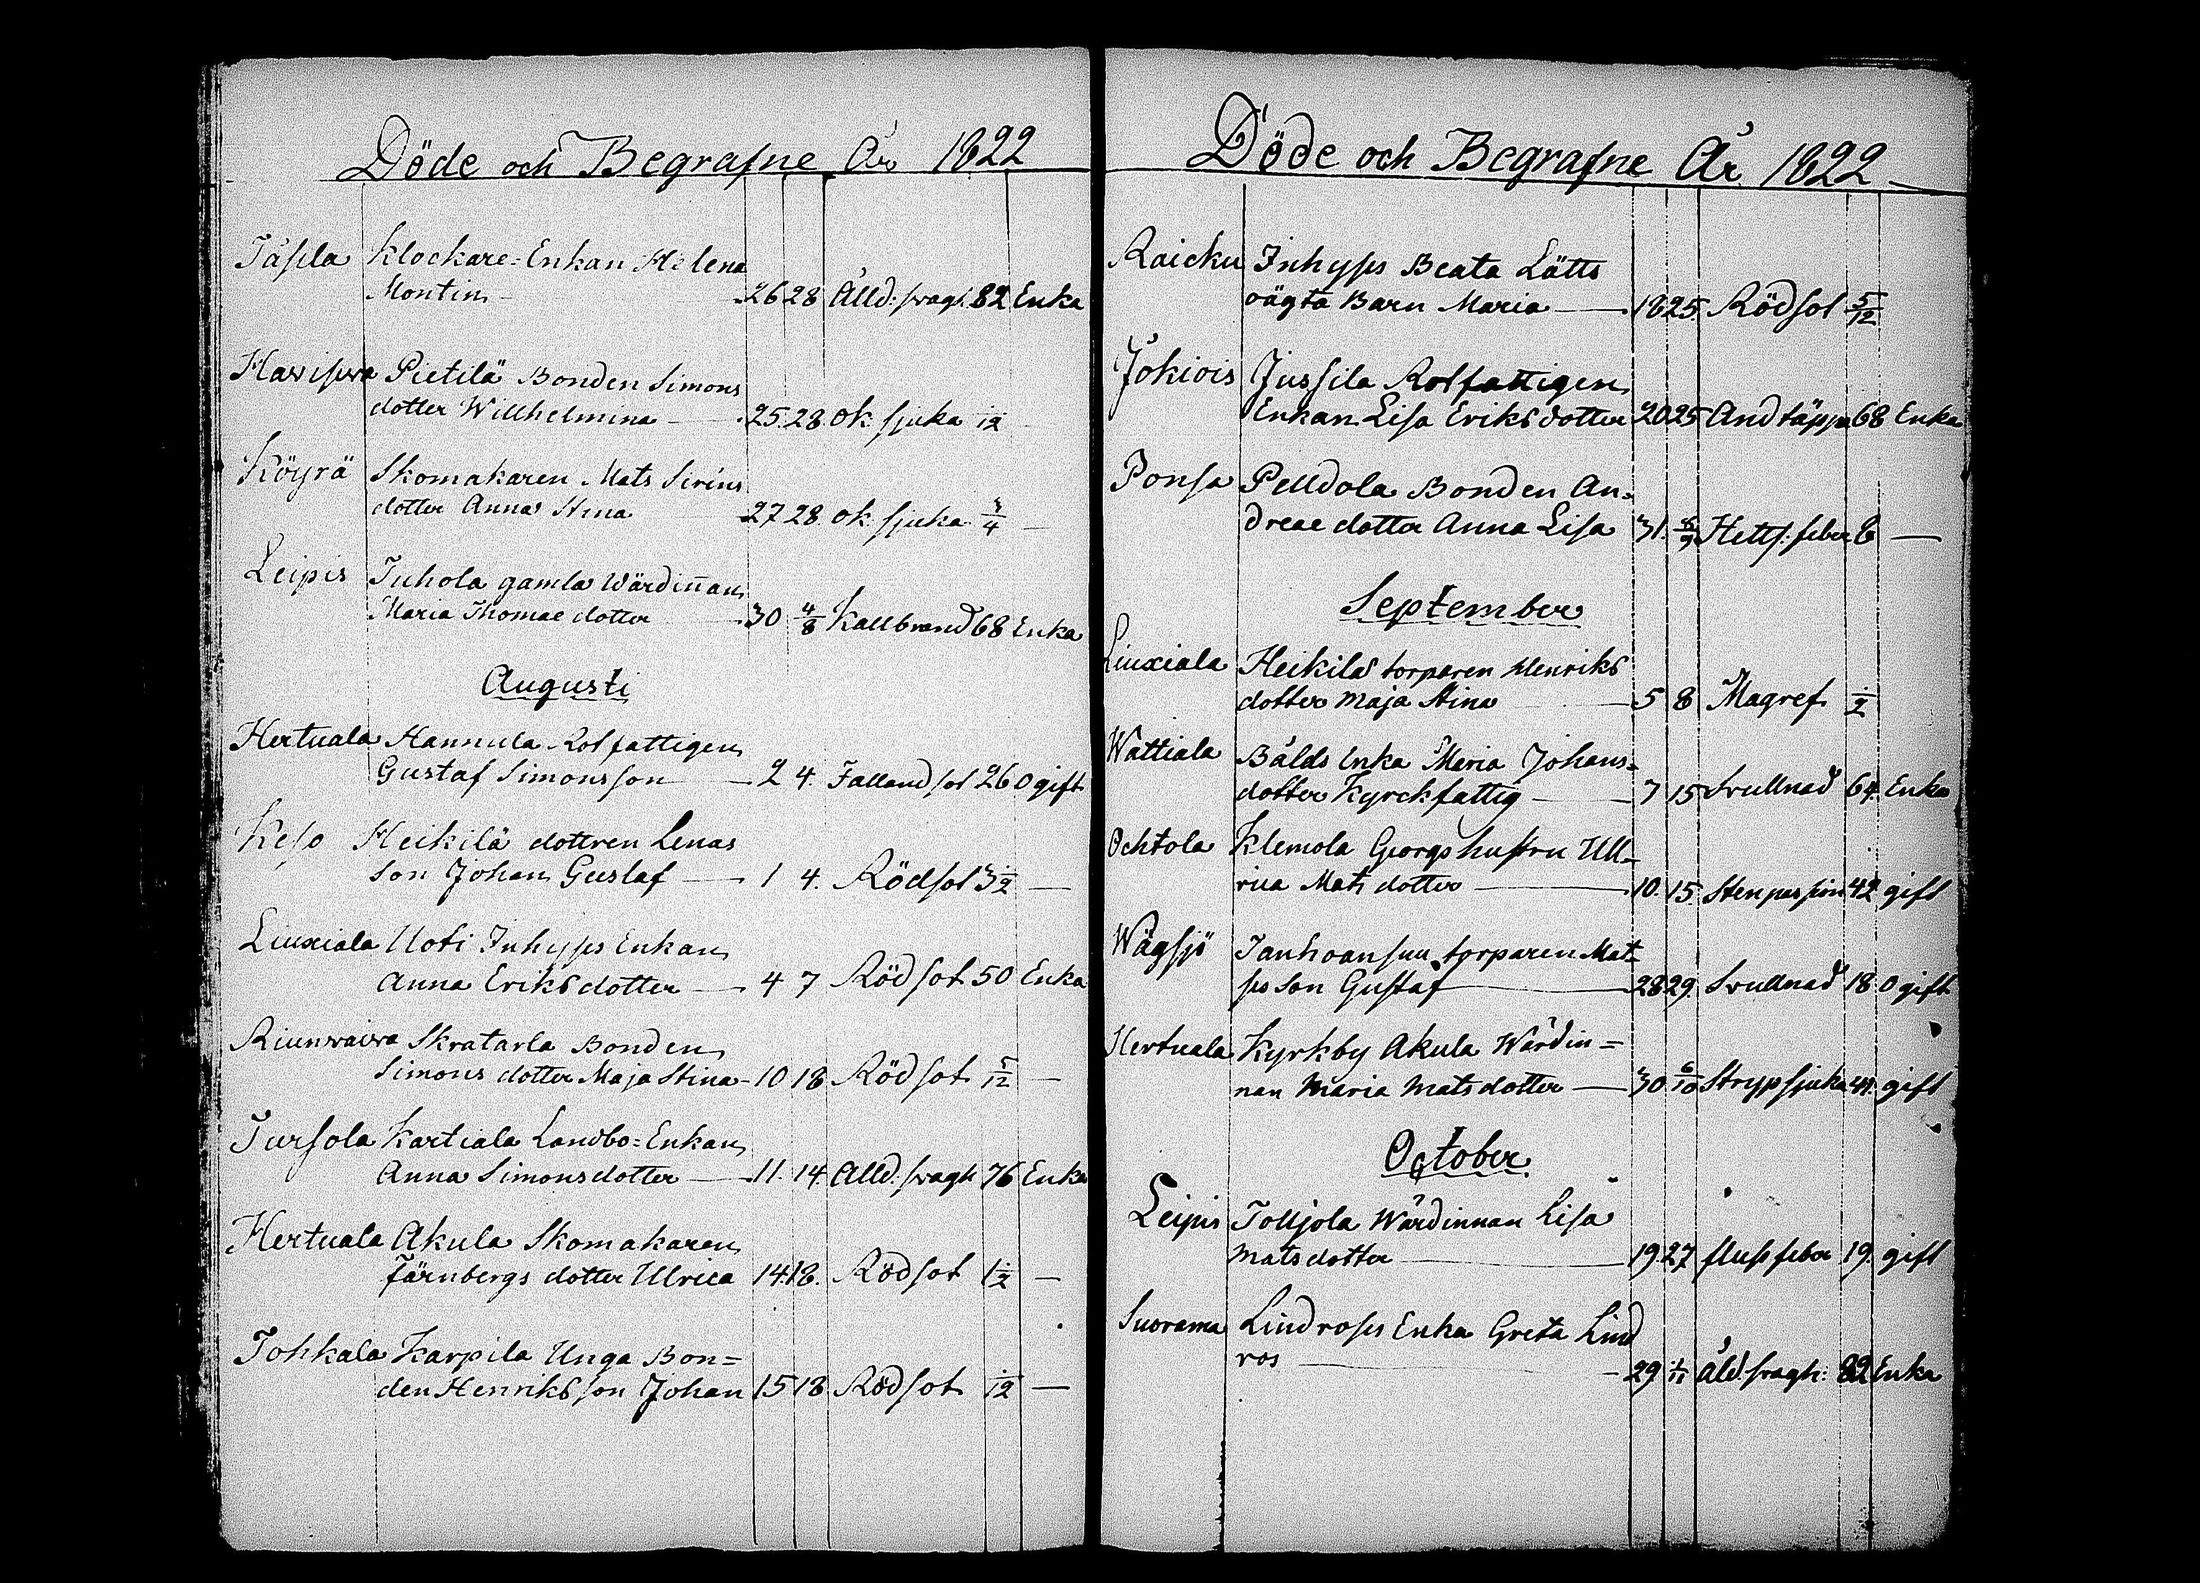 Döde och Begrafne År 1822
Tåssla Klockare-Enkan Helena
Montin 26 28 Ålld: svagh. 82 Enka
Havisva Pietilä Bonden Simons
dotter Willhelmina 25. 28. ok sjuka 1/12
Köyrä Skomakaren Mats Siréns
dotter Anna Stina 27 28 ok sjuka 3/4 —
Leipis Juhola gamla Wärdin̄an
Maria Thomae dotter 30 4/8 Kallbrand 68 Enka
Augusti
Hertuala Hannula Rotfattigen
Gustaf Simonsson — 2 4. Fallandsot 26 Ogift
Keso Heikilä dottren Lenas
Son Johan Gustaf — 1 4. Rödsot 3 1/2 —
Liuxiala Uoti Inhyses Enkan
Anna Eriksdotter — 4 7 Rödsot 50 Enka
Riunvaiva Skratarla Bonden
Simons dotter Maja Stina - 10 18 Rödsot 5/12 —
Tursola Kartiala Landbo-Enkan
Anna Simonsdotter — 11. 14. Alld: svagh 76 Enka
Hertuala Akula Skomakaren
Färnbergs dotter Ulrica 14. 18. Rödsot 1 1/2 —
Tohkala Karpila Unga Bon=
den Henriks son Johan 15 18 Rödsot 1/12 —
Döde och Begrafne År 1822
Raicku Inhyses Beata Lätts
oägta Barn Maria — 18 25. Rödsot 5/12
Jokiois Jussila Rotfattigen
Enkan Lisa Eriksdotter 20 25 Andtäppa 68 Enka
Ponsa Pelldola Bonden An=
dreae dotter Anna Lisa 31. 8/9 Hetts: feber 8 —
September
Liuxiala Heikilä torparen Henriks
dotter Maja Stina — 5 8 Magref 1/2
Wattiala Bålds Enka Maria Johans=
dotter Kyrckfattig — 7 15 Svullnad 64. Enka
Ochtola Klemola Georgs hustru Ull=
rica Matsdotter — 10. 15. Stenpassion 42 gift
Wågsjö Tanhoansuu torparen Mat=
ss son Gustaf — 28 29. Svullnad 18 Ogift
Hertuala Kyrkby Akula Wärdin=
nan Maria Matsdotter — 30 6/10 Strypsjuka 44. gift
October
Leipis Tolljola Wärdinnan Lisa
Matsdotter — 19. 27 flussfeber 19. gift
Suorama Lindross Enka Greta Lind
ros — 29 1/11 Åld. svagh: 82 Enka